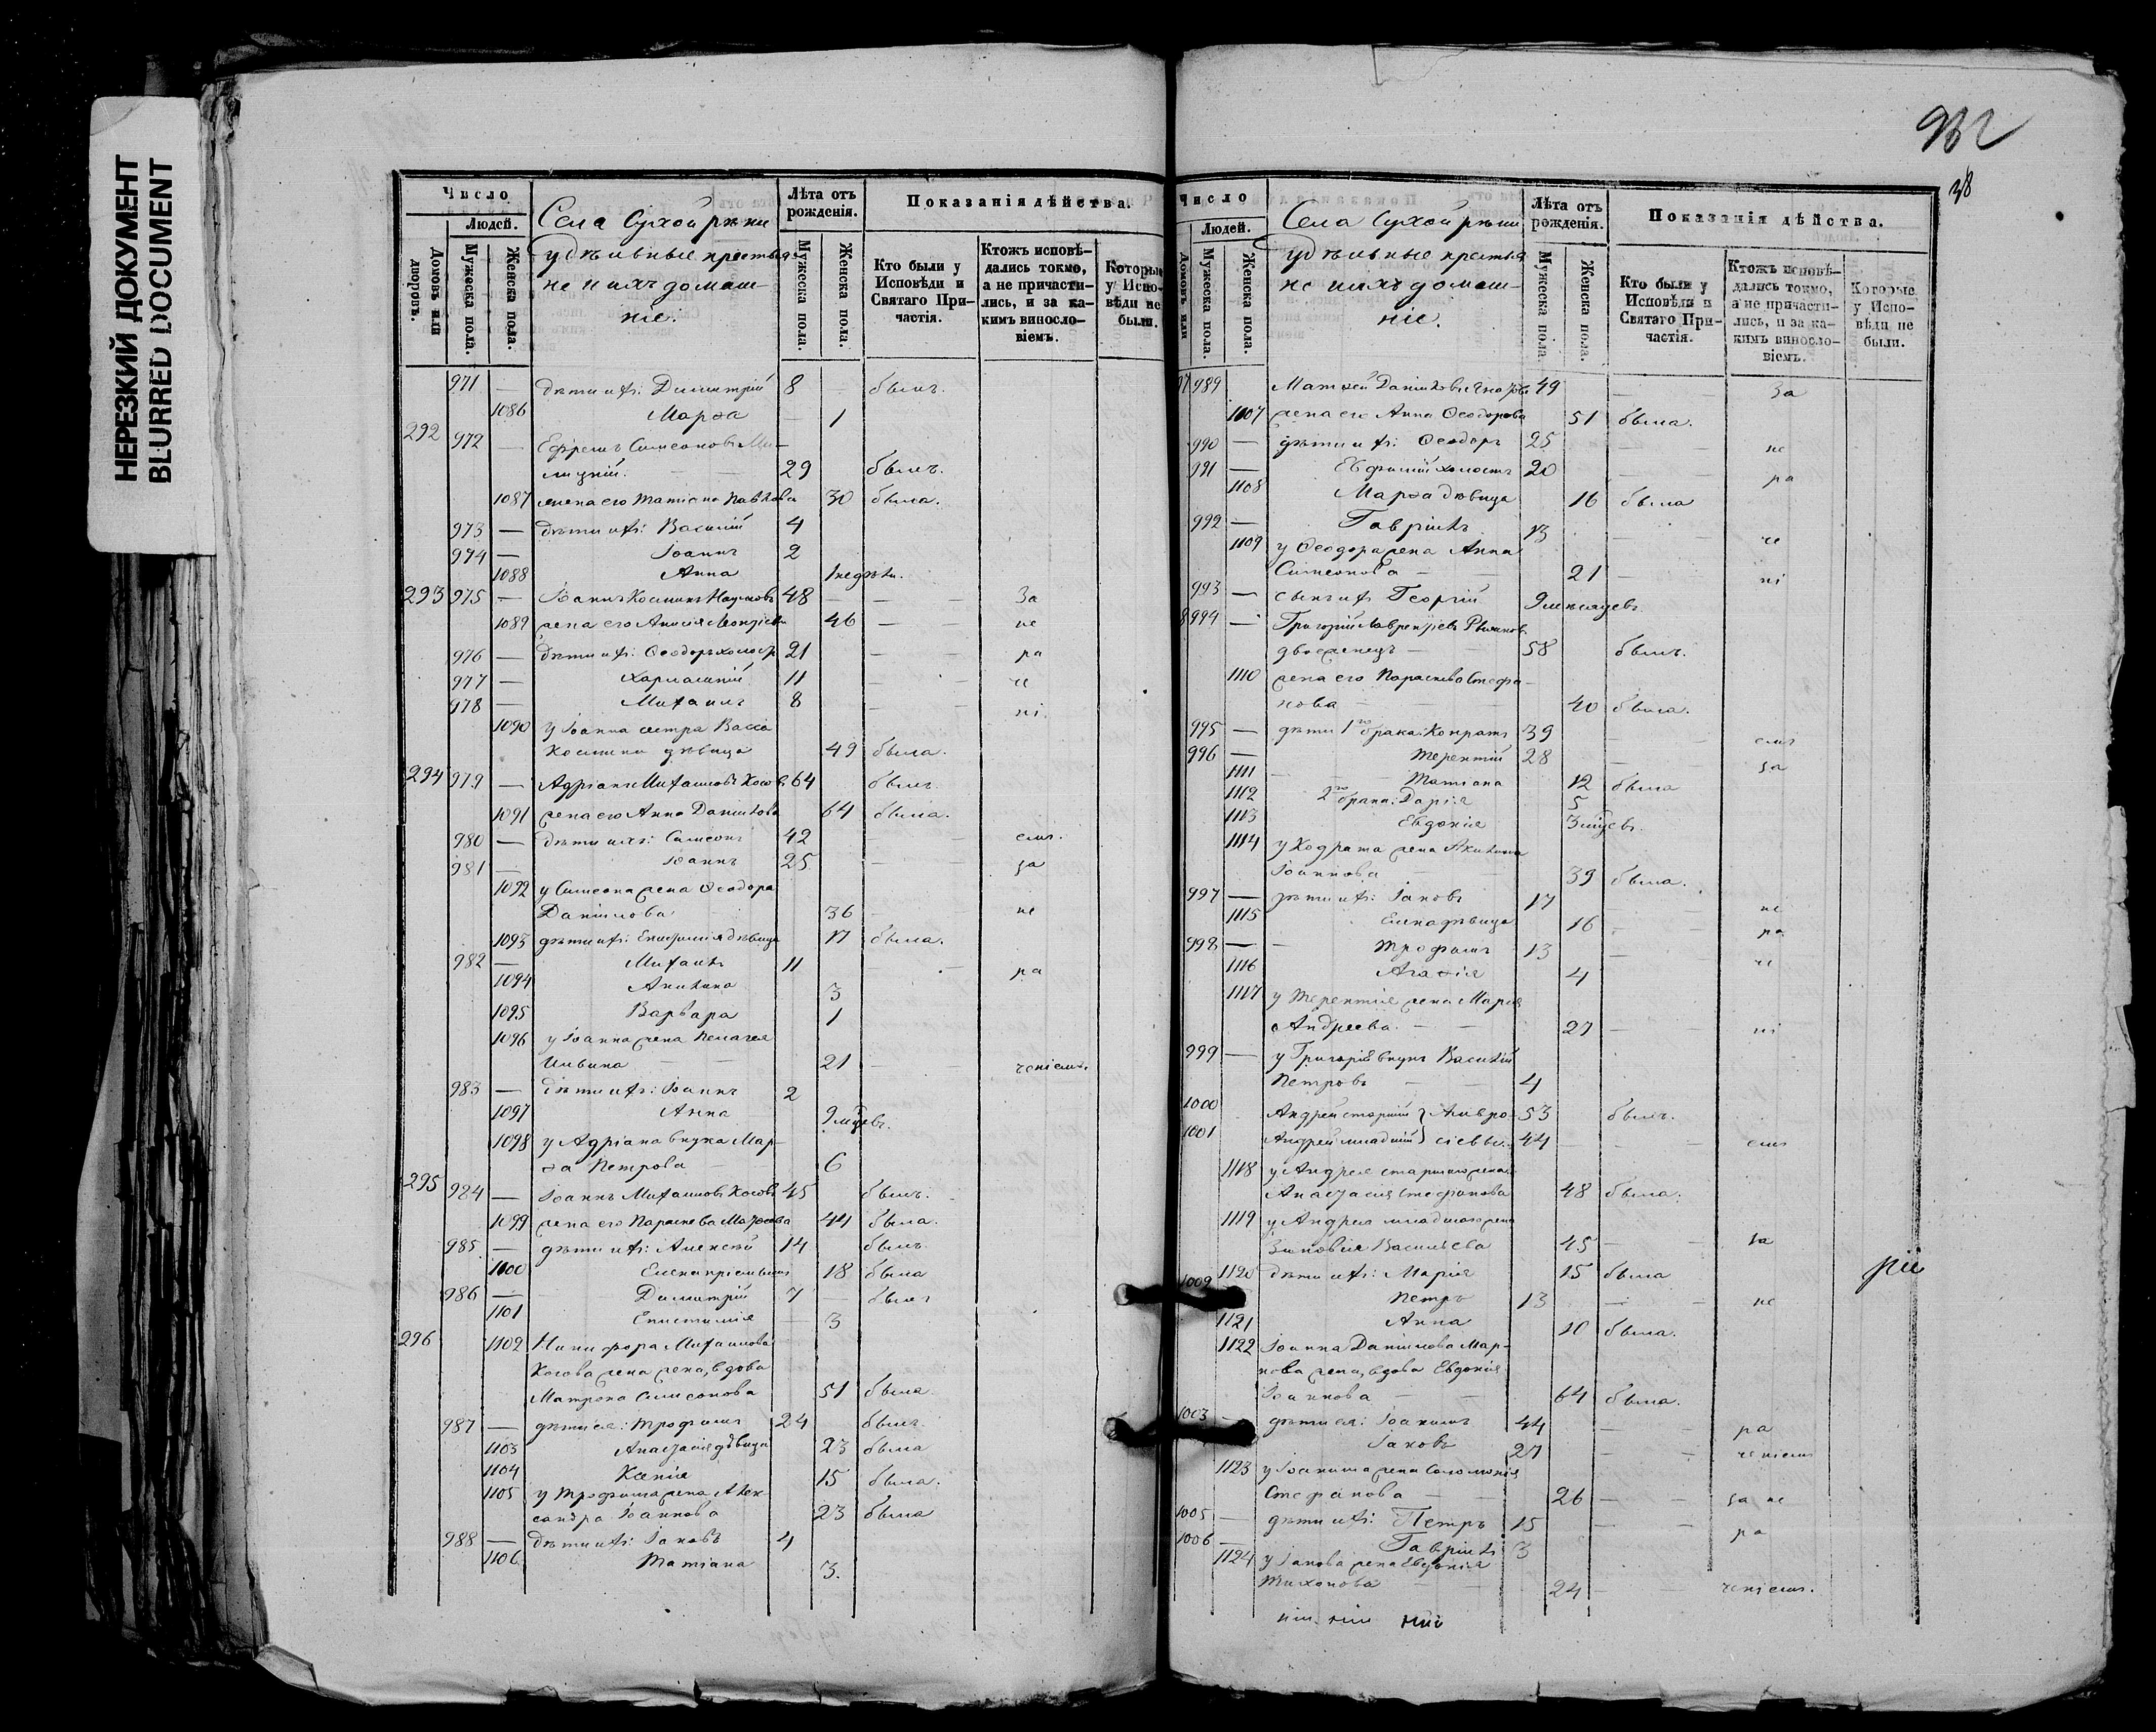 НЕРЕЗКИЙ ДОКУМЕНТ
BLURRED DOCUMENT
Число
Людей.
Домовъ или дворовъ.
Мужеска пола.
Женска пола.
Села Сухой рѣки
удѣльные крестья-
не и ихъ домаш-
ніе.
Лѣта отъ рожденія.
Мужеска пола.
Женска пола.
Показанія дѣйства.
Кто были у Исповѣди и Святаго При-частія.
Ктожъ исповѣ-дались токмо, а не причасти-лись, и за ка-кимъ винословіемъ.
Которые у Испо-вѣди не были.
971 — дѣти ихъ: Димитрій 8 былъ.
1086 Марѳа — 1
292 972 — Ефремъ Симеоновъ
29 былъ.
1087 жена его Татіана Павлова 30 была.
973 — дѣти ихъ: Василій 4
974 — Іоаннъ 2
1088 Анна 1 недѣли.
293 975 — Іоаннъ Косминъ Наумовъ 48 — — За
1089 жена его Анисія Леонтіева 46 — — не
976 — дѣти ихъ: Ѳеодоръ холостъ 21 — — ра
977 — Харлампій 11 — — че
978 — Михаилъ 8 — — ні.
1090 У Іоанна сестра Васса
Космина дѣвица 49 была.
294 979 — Адріанъ Михаиловъ Косовъ 64 былъ.
1091 жена его Анна Даніилова 64 была.
980 — дѣти ихъ: Симеонъ 42 — — емъ.
981 — Іоаннъ 25 — — за
1092 у Симеона жена Ѳеодора
Даніилова 36 — — не
1093 дѣти ихъ: Епистимія дѣвица 17 была.
982 — Михаилъ 11 — — ра
1094 Акилина 3
1095 Варвара 1
1096 у Іоанна жена Пелагея
Ильина — — 21 — ченіемъ.
983 — дѣти ихъ: Іоаннъ 2
1097 Анна 9 мѣсяцевъ.
1098 у Адріана внука Мар-
ѳа Петрова — — 6
295 984 — Іоаннъ Михаиловъ Косовъ 45 былъ.
1099 жена его Параскева Матѳеева 44 была.
985 — дѣти ихъ: Алексѣй 14 былъ.
1100 Елена 18 была
986 — Димитрій 7 — былъ
1101 Епистимія — 3
296 1102 Никифора Михаилова
Косова жена, вдова
Матрона Симеонова 51 была
987 — дѣти ея: Трофимъ 24 былъ.
1103 Анастасія дѣвица 23 была
1104 Ксенія 15 была.
1105 у Трофима жена Алек-
сандра Іоаннова 23 была
988 — дѣти ихъ: Іаковъ 4
1106 Татіана 3.
932
38
Число
Людей.
Домовъ или
Мужеска пола.
Женска пола.
Села Сухой рѣки
удѣльные крестья
не и ихъ домаш-
ніе.
Лѣта отъ рожденія.
Мужеска пола.
Женска пола.
Показанія дѣйства.
Кто были у Исповѣди и Святаго При-частія.
Ктожъ исповѣ-дались токмо, а не причасти-лись, и за ка-кимъ винословіемъ.
Которые у Испо-вѣди не были.
97 989 Матѳей Даніиловъ 49 — — За
1107 жена его Анна Ѳеодорова 51 была.
990 — дѣти ихъ: Ѳеодоръ 25 — — не
991 — Евфимій холостъ 20 — — ра
1108 Марѳа дѣвица 16 была
992 — Гавріилъ 13 — — че
1109 у Ѳеодора жена Анна
Симеонова — — 21 — ні
993 — сынъ ихъ Георгій 9 мѣсяцевъ.
8 994 — Григорій Лаврентіевъ
двоеженецъ — — 58 былъ.
1110 жена его Параскева Стефа-
нова — — 40 была.
995 — дѣти 1го брака: Кондратъ 39 — — емъ
996 — Терентій 28 — — за
1111 — — Татіана 12 была
1112 2го брака: Дарія 5
1113 Евдокія 3 мѣсяцевъ.
1114 у Кодрата жена Акилина
Іоаннова — — 39 была.
997 — дѣти ихъ: Іаковъ 17 — — не
1115 Елена дѣвица 16 — — ра
998 — — Трофимъ 13 — — че
1116 Агаѳія 4
1117 у Терентія жена Марія
Андреева. — — 27 — — ні
999 — у Григорія внукъ Василій
Петровъ — — 4
1000 Андрей старшій } Амвро- 53 былъ.
1001 Андрей младшій } сіевы. 44 — — емъ
1118 у Андрея старшаго жена
Анастасія Стефанова 48 была.
1119 у Андрея младшаго жена
Зиновія Васильева 45 — — за
1120 дѣти ихъ: Марія 15 была
1002 Петръ 13 — — не
1121 Анна 10 была.
1122 Іоанна Даніилова Мар-
кова жена, вдова Евдокія
Іоаннова — — 64 была.
1003 — дѣти ея: Іоакимъ 44 — — ра
Іаковъ 27 — — ченіемъ
1123 у Іоакима жена Соломонія
Стефанова — — 26 — — за не
1005 — дѣти ихъ: Петръ 15 — — ра
1006 — Гавріилъ 3
1124 у Іакова жена Евдокія
Тихонова — — 24 — — ченіемъ.
рій